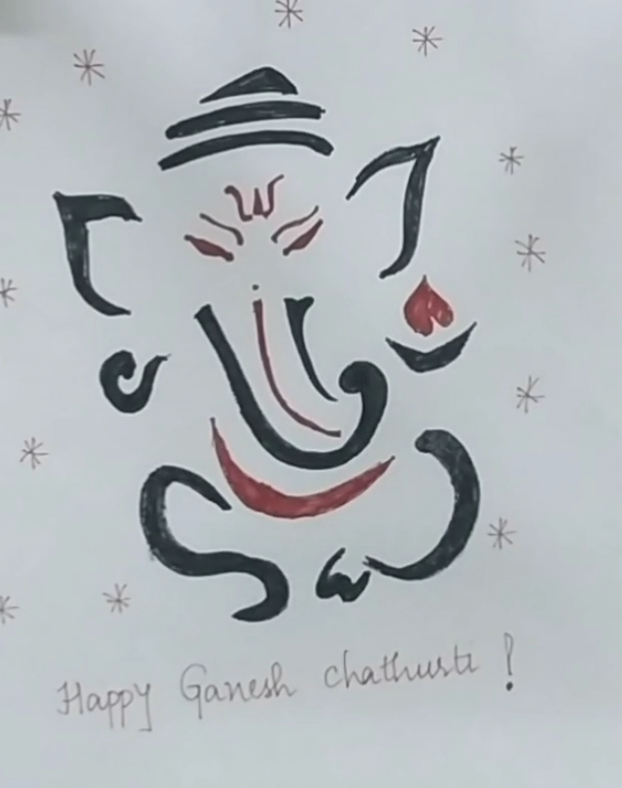 Happy Ganesh chathurti !